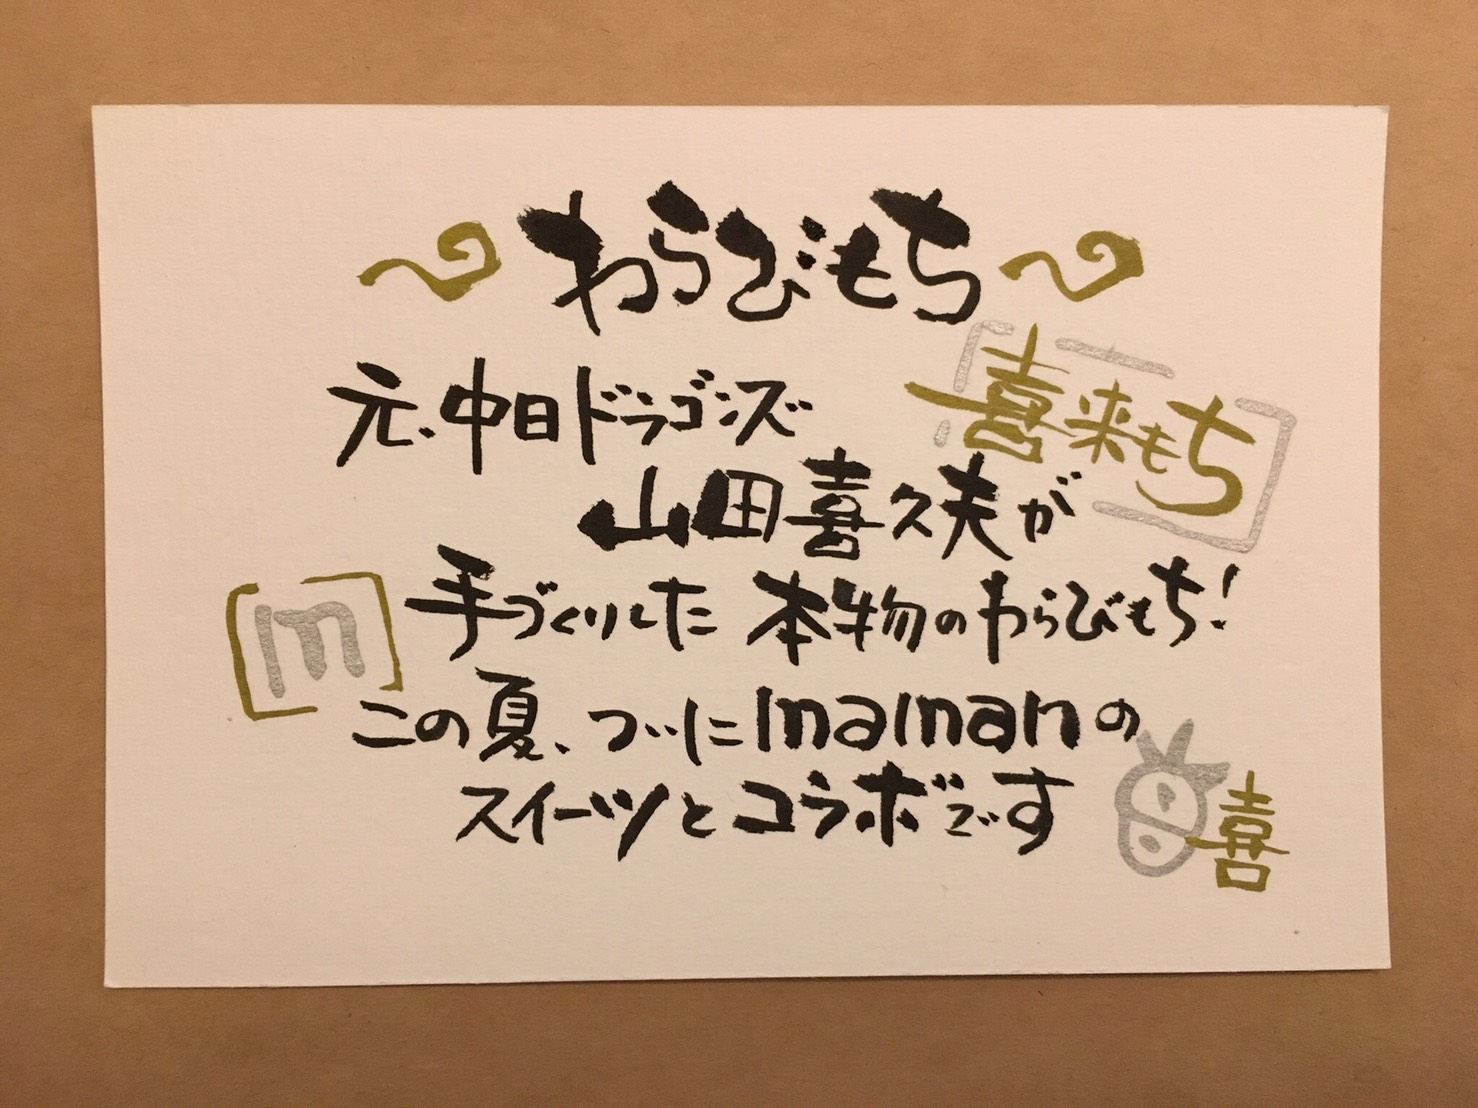 わらびもち
喜来もち
元、中日ドラゴンズ
山田喜久夫が
手づくりした 本物のわらびもち!
m
この夏、ついにmamanの
スイーツとコラボです
喜